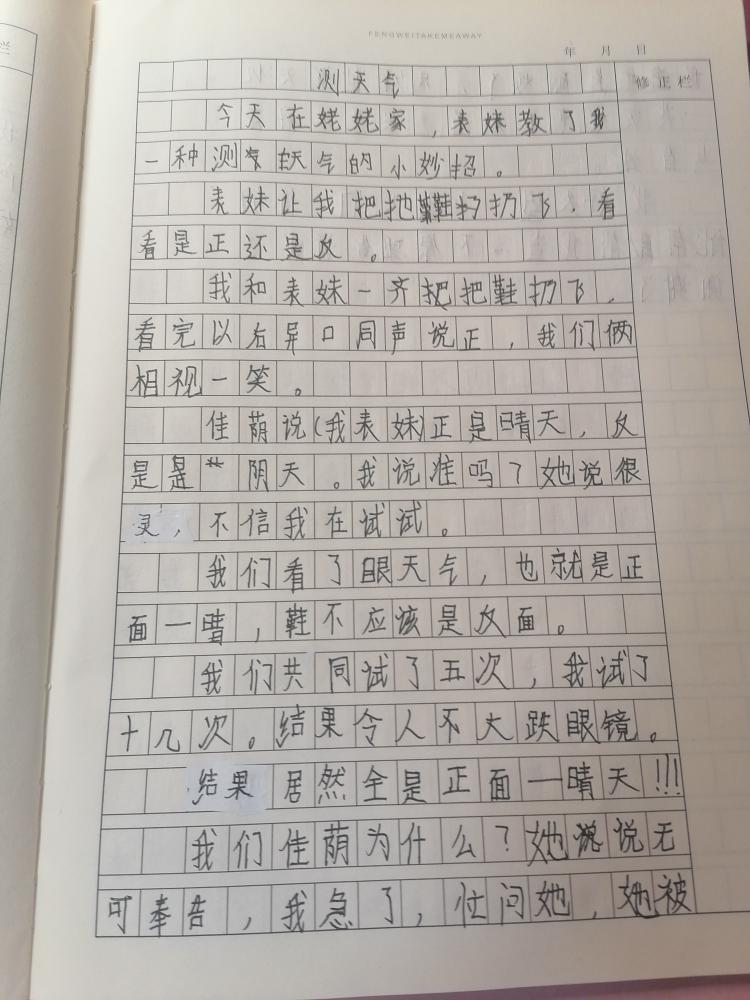 FENGWEITAKEMEAWAY
年 月 日
测天气
修正栏
今天在姥姥家，表妹教了我
一种测天气的小妙招。
表妹让我把鞋扔飞，看
看是正还是反。
我和表妹一齐把把鞋扔飞，
看完以后异口同声说正，我们俩
相视一笑。
佳萌说(我表妹)正是晴天，反
是是阴天。我说准吗？她说很
灵，不信我在试试。
我们看了眼天气，也就是正
面一晴，鞋不应该是反面。
我们共同试了五次，我试了
十几次。结果令人不大跌眼镜。
结果居然全是正面一晴天!!!
我们佳萌为什么？她说说无
可奉告，我急了，忙问她，她被